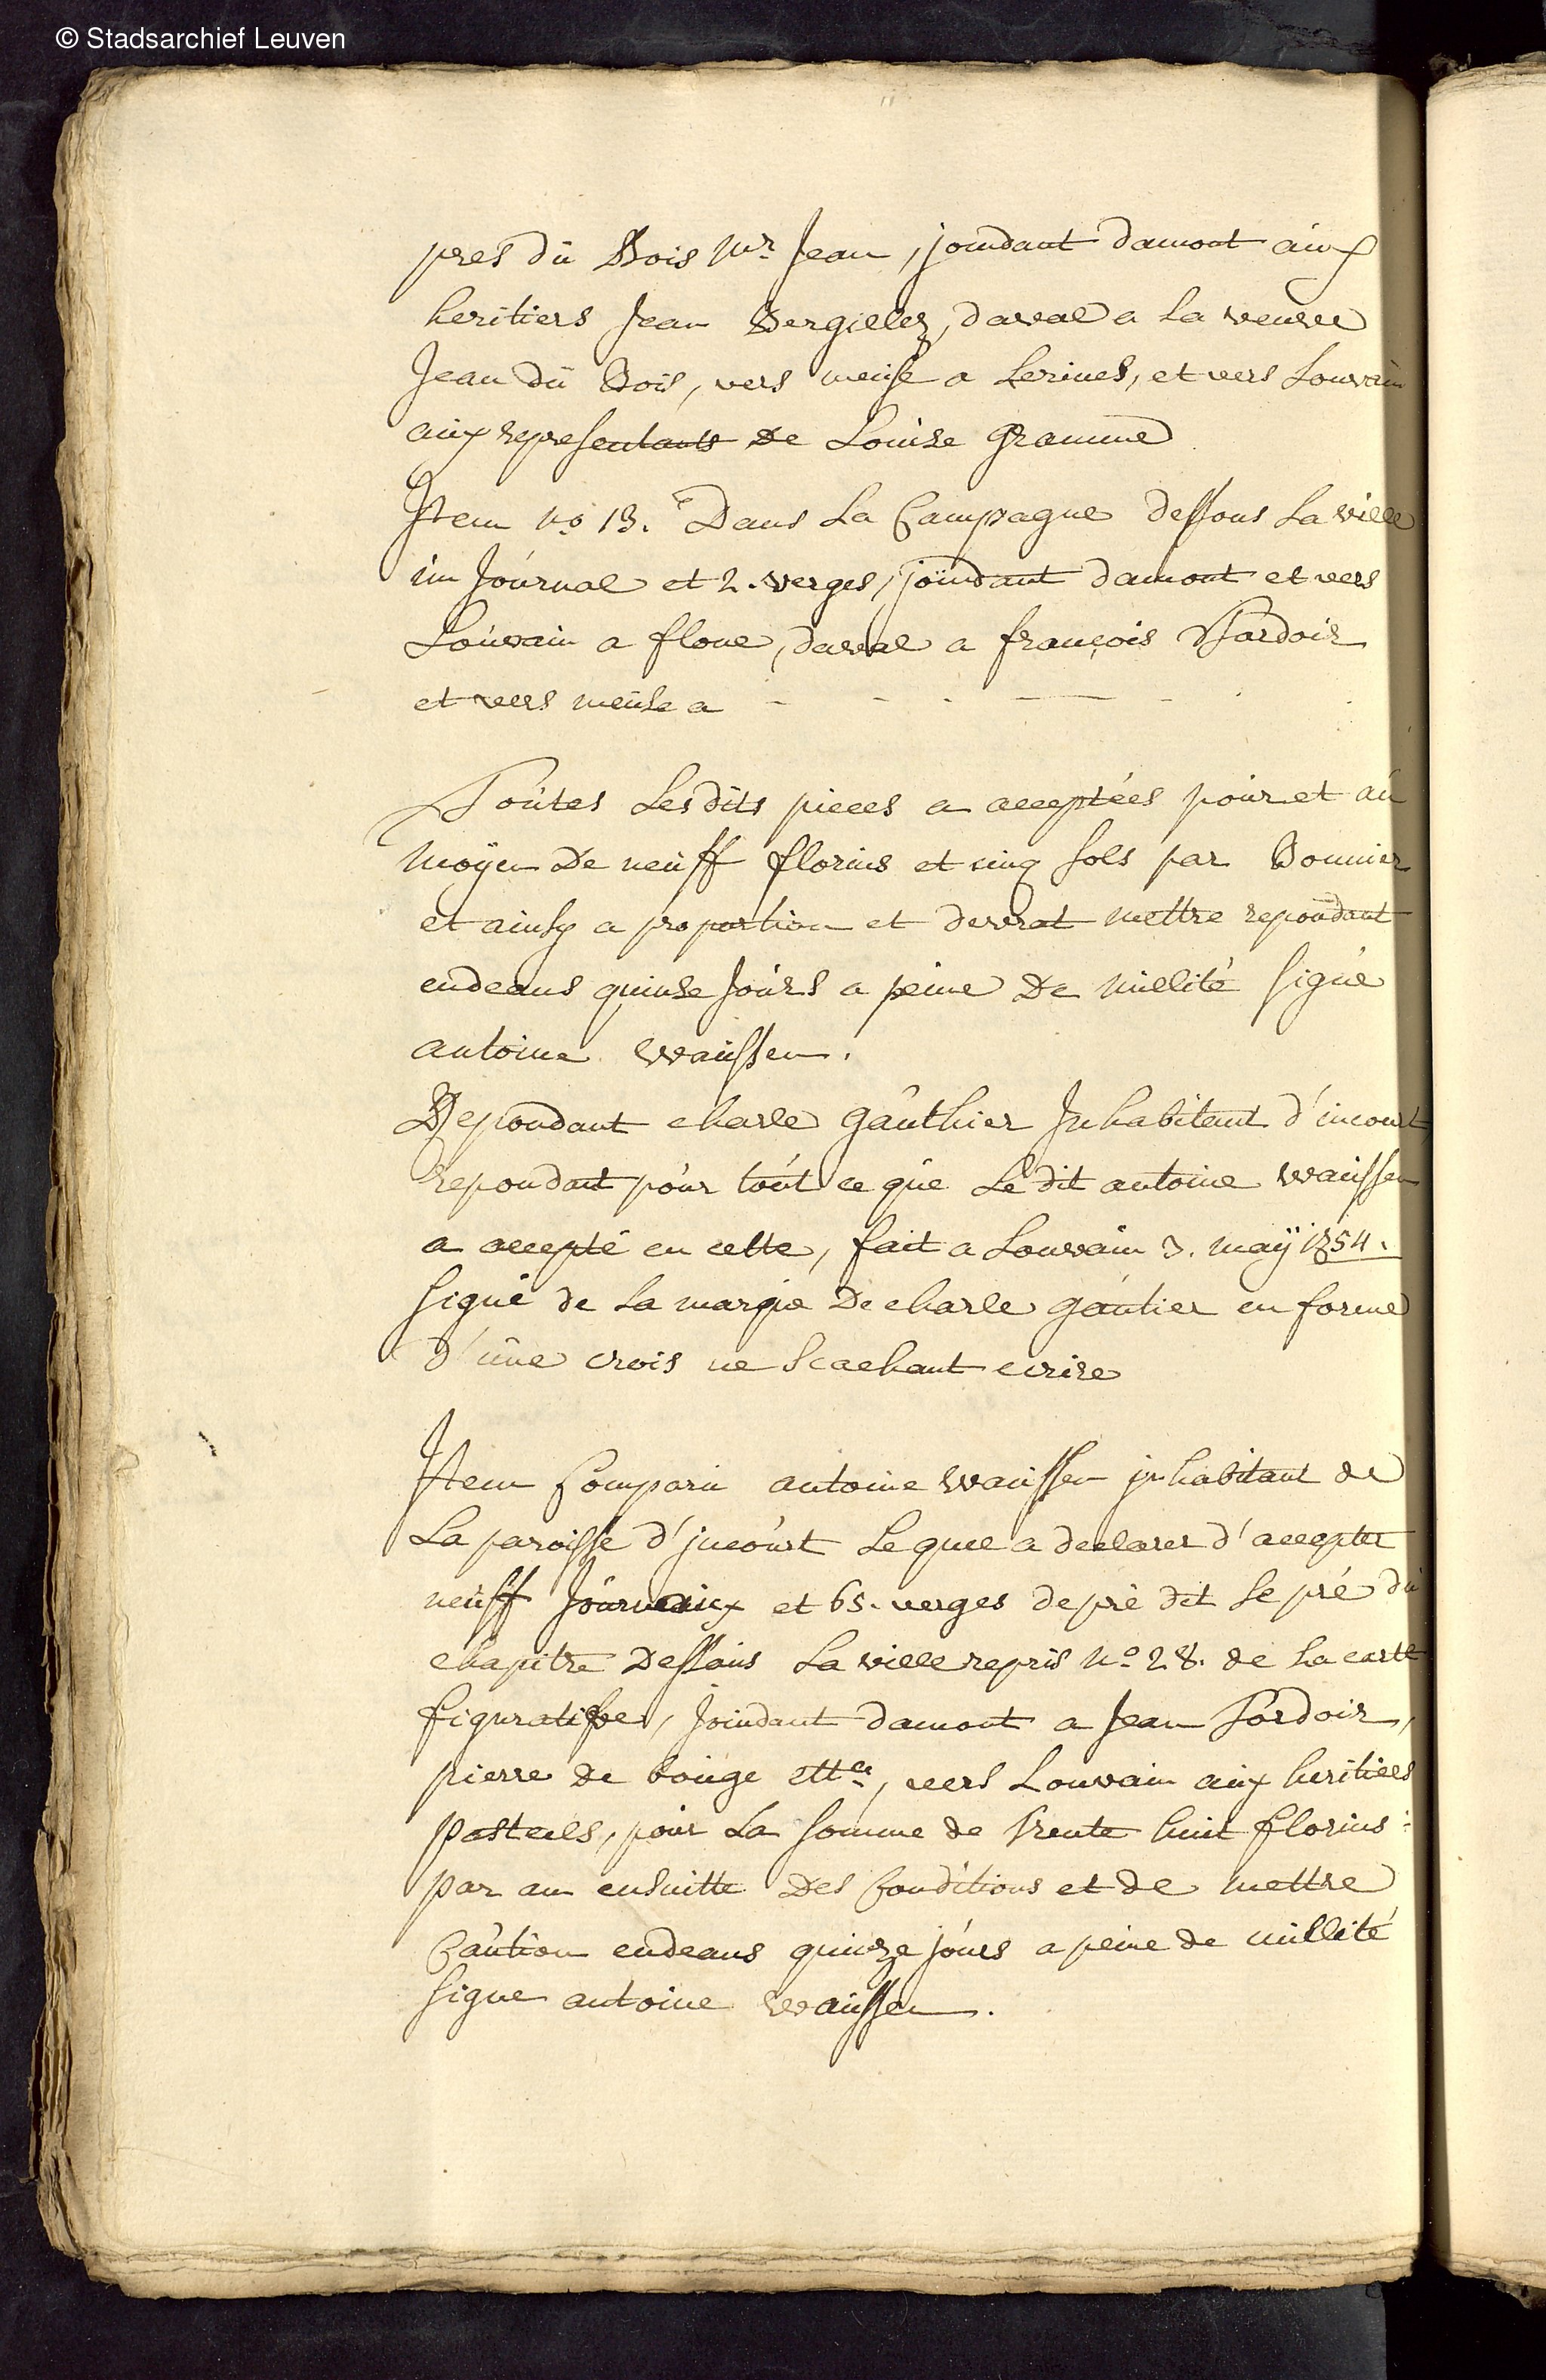 © Stadsarchief Leuven
pres dú Bois Mr Jean, joindant damont aúx
heritiers Jean Bergillez, daval a la veuve
Jean dú Bois, vers meuse a Lerines, et vers Louvain
aúx representants de Louise Gramme
Item no 13. Dans La Campagne dessous La ville
ún Joúrnal et 2. verges, joindant damont et vers
Loúvain a flone, daval a françois Tordoir
et vers meuse a - - - - -
Toútes Lesdits pieces a acceptées poúr et aú
moÿen de neúff florins et cinq sols par Bonnier
et ainsy a proportion et devrat mettre repondant
endeans quinse joúrs a peine de núllité signé
antoine waússen.
Repondant charle gaúthier Inhabitant d'incourt
repondant poúr toút ce qúe Le dit antoine waússen
a accepté en cette, fait a Louvain 3. maÿ 1754.
signé de La marqúe de charle gaútier en forme
d'úne crois ne scachant ecrire
Item Comparú antoine waússen inhabitant de
La paroisse d'jncoúrt Lequel a declarer d'accepter
neúff Joúrneaúx et 65. verges de pré dit le pré dú
chapitre dessoús La ville repris No 28. de La carte
figuratifve, Joindant damont a Jean Tordoir,
pierre de boúge ettca, vers Louvain aúx heritiers
pasteels, poúr La somme de trente húit florins
par an ensúitte des Conditions et de mettre
Caútion endeans quinze joúrs a peine de núllité
signe antoine waússen.